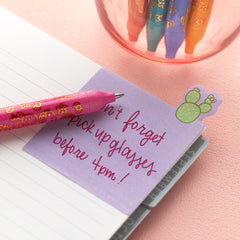 n't forget
pick up glasses
before 4pm!